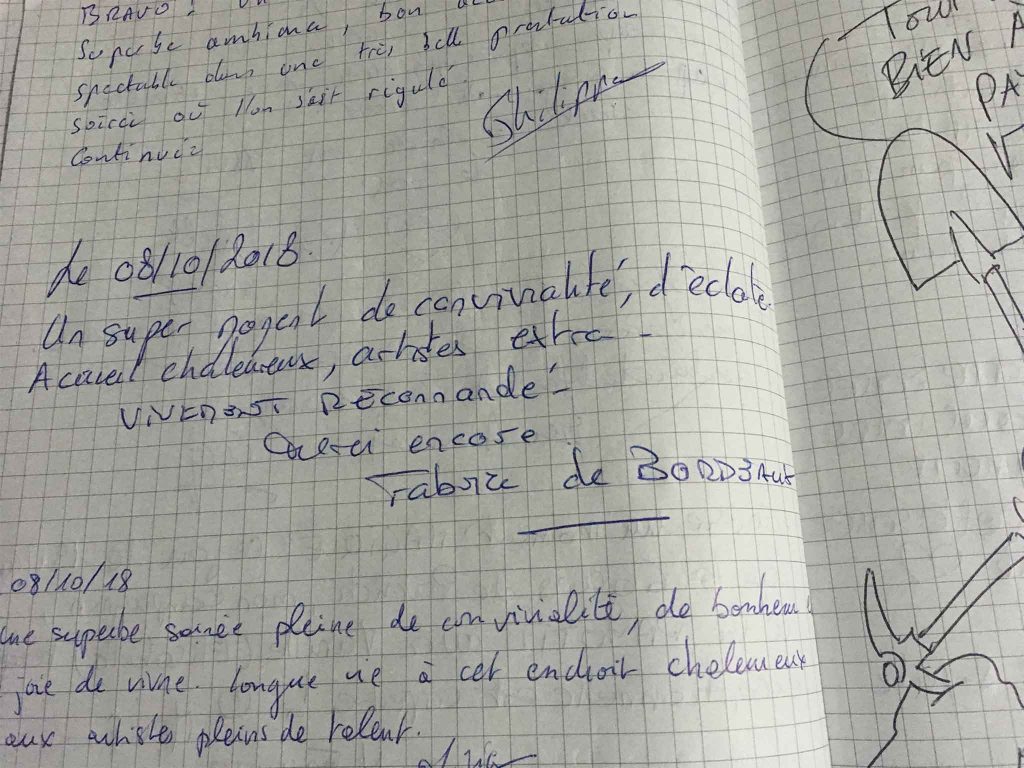 BRAVO!
Superbe ambiance, bon
spectable dans une très belle prestation
soirée où l'on s'est rigulé
Continuéz
Philippe
Le 08/10/2018.
Un super moment de convivialité, d'éclate.
Accueil chaleureux, artistes extra -
VIVEMENT RECOMMANDÉ -
encore
Fabrice de BORDEAUX
08/10/18
une superbe soirée pleine de convivialité, de bonheur
joie de vivre. longue vie à cet endroit chaleureux
aux artistes pleins de talent.
BIEN